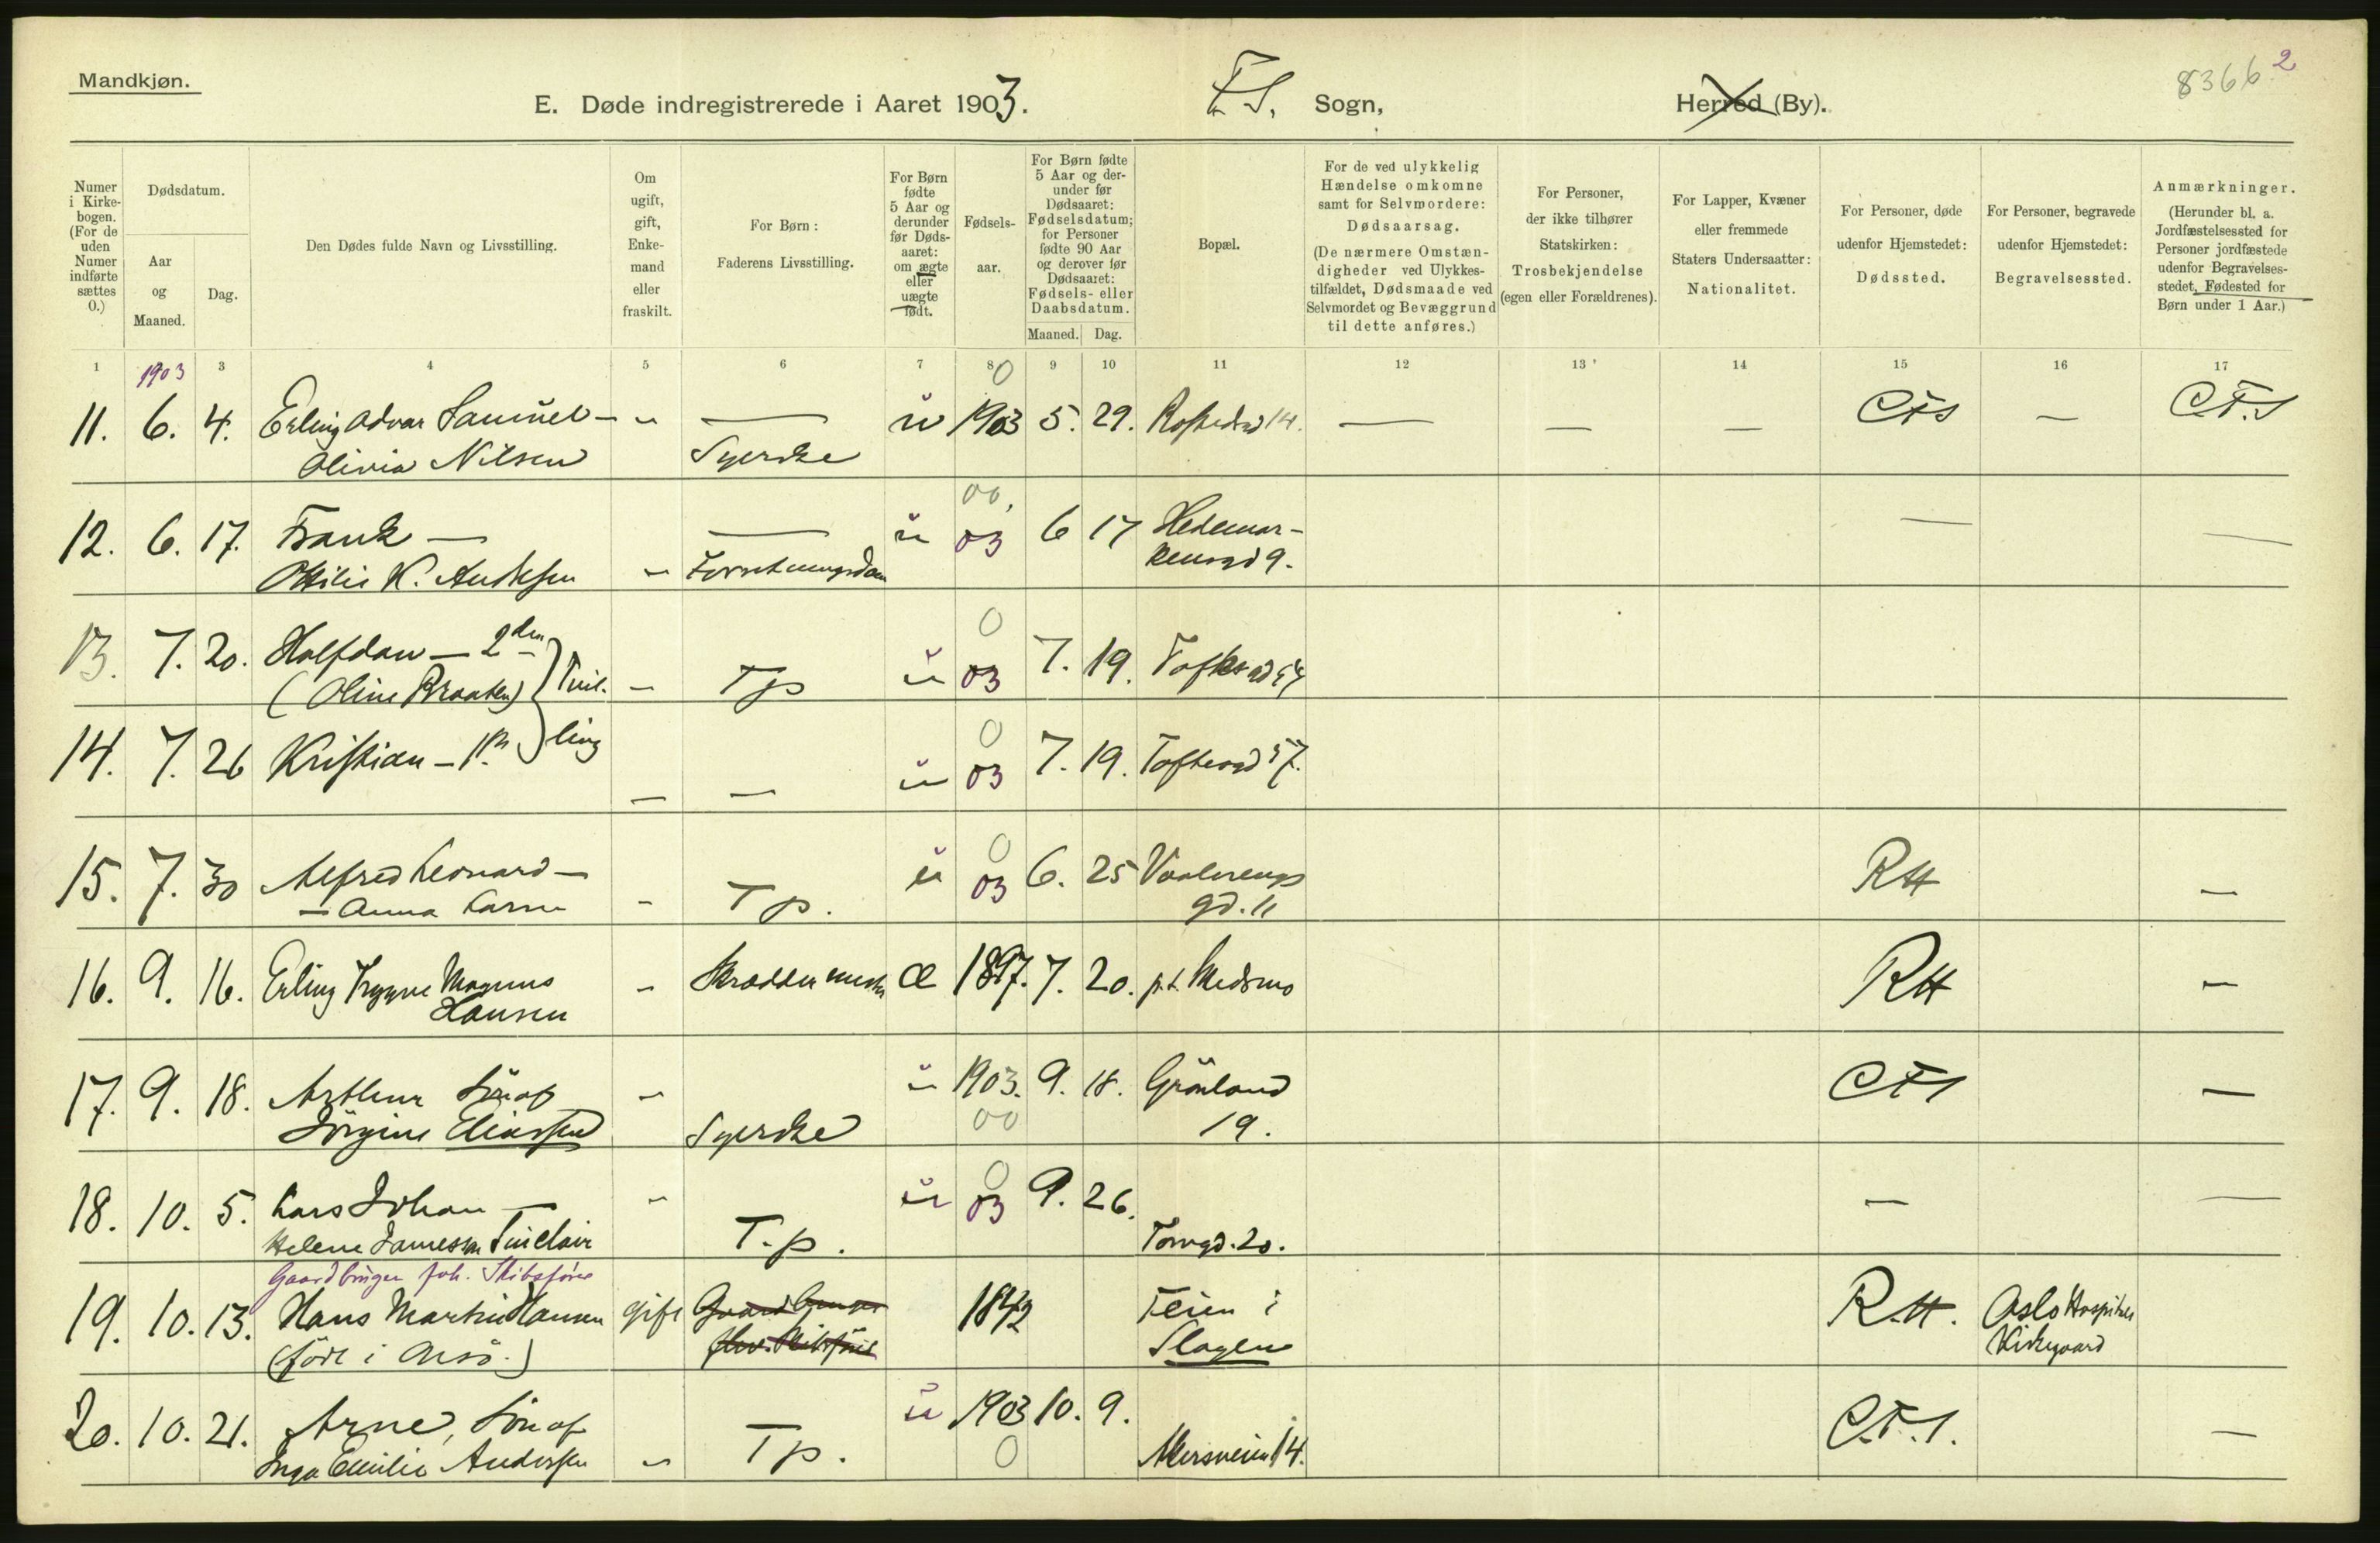 Mandkjøn.
8366 2
E. Døde indregistrerede i Aaret 1903. F.S. Sogn, Herred (By).
Numer i Kirke-bogen. (For de uden Numer indførte sættes 0.)
Dødsdatum.
Aar og Maaned.
Dag.
Den Dødes fulde Navn og Livsstilling.
Om ugift, gift, Enke-mand eller fraskilt.
For Børn: Faderens Livsstilling.
For Børn fødte 5 Aar og derunder før Døds-aaret: om ægte eller uægte født.
Fødsels-aar.
For Børn fødte 5 Aar og der-under før Dødsaaret: Fødselsdatum; for Personer fødte 90 Aar og derover før Dødsaaret: Fødsels- eller Daabsdatum.
Maaned. Dag.
Bopæl.
For de ved ulykkelig Hændelse omkomne samt for Selvmordere: Dødsaarsag. (De nærmere Omstæn-digheder ved Ulykkes-tilfældet, Dødsmaade ved Selvmordet og Bevæggrund til dette anføres.)
For Personer, der ikke tilhører Statskirken: Trosbekjendelse (egen eller Forældrenes).
For Lapper, Kvæner eller fremmede Staters Undersaatter: Nationalitet.
For Personer, døde udenfor Hjemstedet: Dødssted.
For Personer, begravede udenfor Hjemstedet: Begravelsessted.
Anmærkninger. (Herunder bl. a. Jordfæstelsessted for Personer jordfæstede udenfor Begravelses-stedet, Fødested for Børn under 1 Aar.)
1 1903 3 4 5 6 7 8 9 10 11 12 13 14 15 16 17
0
11. 6. 4. Erling Advar Samuel - - — u 1903 5. 29. — — — CFS — C.F.S
Olivia Nilsen Syerske
00,
12. 6. 17. Frank — — u 03 6 17 Hedemar-
Ottilie K. Andersen - Forretningsdam kensgd 9.
0
13. 7. 20. Halfdan — 2den u 03 7. 19.
(Oline Braaten) Tvil- - Tp
0
14. 7. 26 Kristian - 1ste ling — — u 03 7. 19. Toftesgd 57.
0
15. 7. 30 Alfred Leonard — u 03 6. 25 Vaalerengs RH —
— Anna - Tp. gd. 11
16. 9. 16. Erling Trygve Magnus - Skræddermester Æ 1897. 7. 20. p.t. Skedsmo RH —
Hansen
17. 9. 18. Arthur Søn af - u 1903. 9. 18. Grønland CFS —
Jörgine Eliassen Syerske 00 19.
0
18. 10. 5. Lars Johan — - u 03 9. 26. — —
Helene Jamesen Sinclair T.p. Torvgd. 20.
Gaardbruger forh. Skibsfører
19. 10. 13. Hans Martin Hansen gift Gaardbruger 1842 Teien i R.H. Oslo Hospitals
(født i Arsö.) forh. Skibsfører Slagen Kirkegaard
20. 10. 21. Arne, Søn af u 1903 10. 9. C.F.S. —
Inga Emilie Andersen - Tp. 0 Akersveien 14.